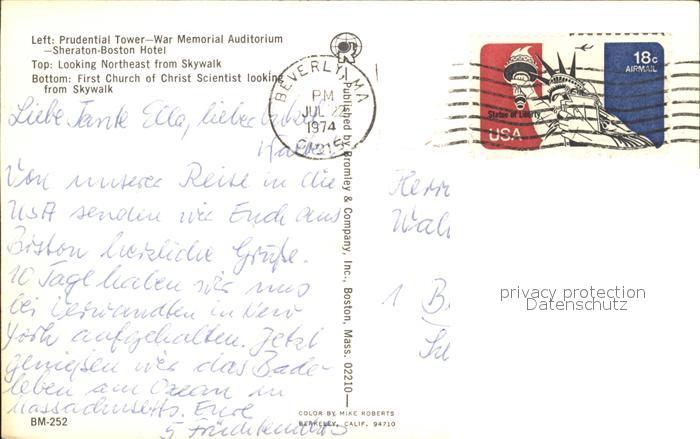 Left: Prudential Tower—War Memorial Auditorium
—Sheraton-Boston Hotel
Top: Looking Northeast from Skywalk
Bottom: First Church of Christ Scientist looking
from Skywalk
Liebe Tante Ella, lieber
Von unserer Reise in die
USA senden wir Euch aus
Boston herzliche Grüße.
10 Tage haben wir uns
bei Verwandten in New
York aufgehalten. Jetzt
genießen wir das Bade-
leben am Ozean in
Massachusetts. Eure
5
BM-252
BEVERLY, MA
PM
JUL
1974
Published by Bromley & Company, Inc., Boston, Mass. 02210
COLOR BY MIKE ROBERTS
BERKELEY, CALIF. 94710
18c
AIRMAIL
Statue of Liberty
USA
Herrn
1 B
privacy protection
Datenschutz